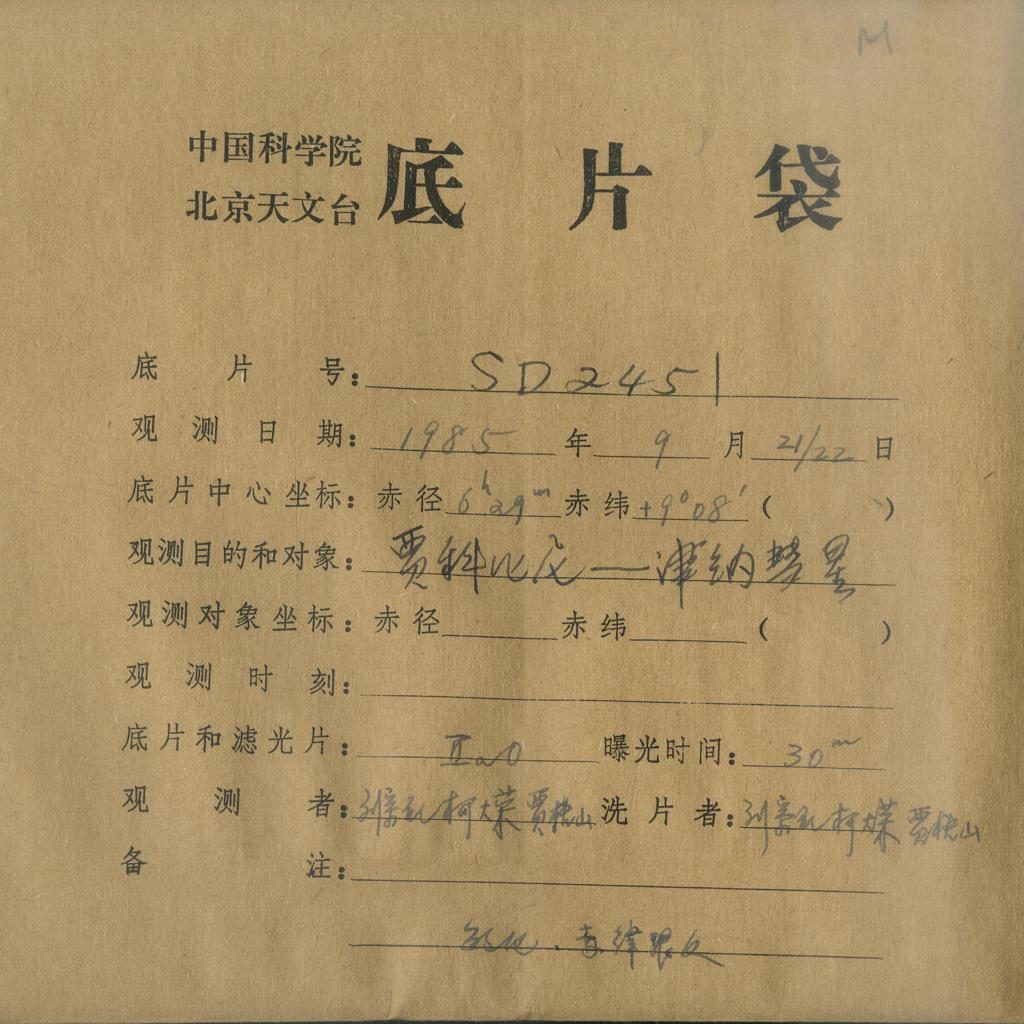 M
中国科学院
北京天文台
底片袋
底片号：SD2451
观测日期：1985年9月21/22日
底片中心坐标：赤径6h29m赤纬+9°08′（ ）
观测目的和对象：贾科比尼—津纳彗星
观测对象坐标：赤径 赤纬 （ ）
观测时刻：
底片和滤光片：IIaO 曝光时间：30m
观测者：刘宗礼 柯大荣 贾 山 洗片者：刘宗礼 柯大荣 贾 山
备注：